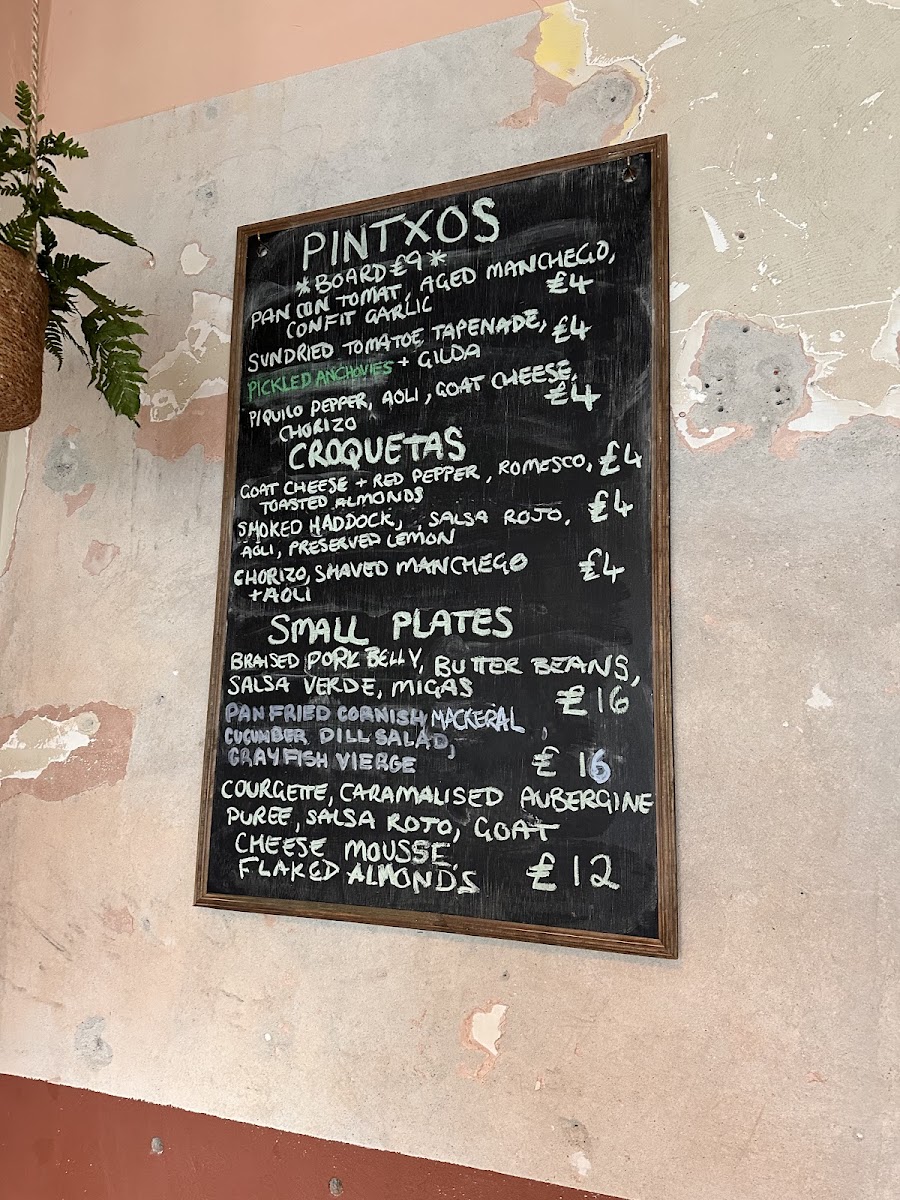 PINTXOS
*BOARD £9*
PAN CON TOMAT, AGED MANCHEGO,
CONFIT GARLIC £4
SUNDRIED TOMATOE TAPENADE, £4
PICKLED ANCHOVIES + GILDA
PIQUILO PEPPER, AOLI, GOAT CHEESE, £4
CHORIZO
CROQUETAS
GOAT CHEESE + RED PEPPER, ROMESCO, £4
TOASTED ALMONDS
SMOKED HADDOCK, SALSA ROJO, £4
AOLI, PRESERVED LEMON
CHORIZO, SHAVED MANCHEGO £4
+AOLI
SMALL PLATES
BRAISED PORK BELLY, BUTTER BEANS,
SALSA VERDE, MIGAS £16
PAN FRIED CORNISH MACKERAL
CUCUMBER DILL SALAD,
CRAYFISH VIERGE £16
COURGETTE, CARAMALISED AUBERGINE
PUREE, SALSA ROJO, GOAT
CHEESE MOUSSE.
FLAKED ALMONDS £12